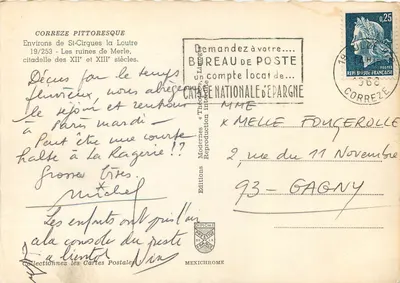 CORREZE PITTORESQUE
Environs de St-Cirgues la Loutre
19/253 - Les ruines de Merle,
citadelle des XIIe et XIIIe siècles.
Déçus par le temps
fluvieux, nous abrégeons
le séjour et rentrons
à Paris mardi -
Peut être une courte
halte à la
Grosses bises.
Michel
Les enfants ont pris
à la
à bientôt
Collectionnez les Cartes Postales
MEXICHROME
Editions Modernes
Reproduction
Demandez à votre....
BUREAU DE POSTE
compte local de...
CAISSE NATIONALE D'EPARGNE
0,25
REPUBLIQUE FRANÇAISE
19
1968
CORREZE
MME
x MELLE FOUGEROLLE
2, rue du 11 Novembre
93 - GAGNY